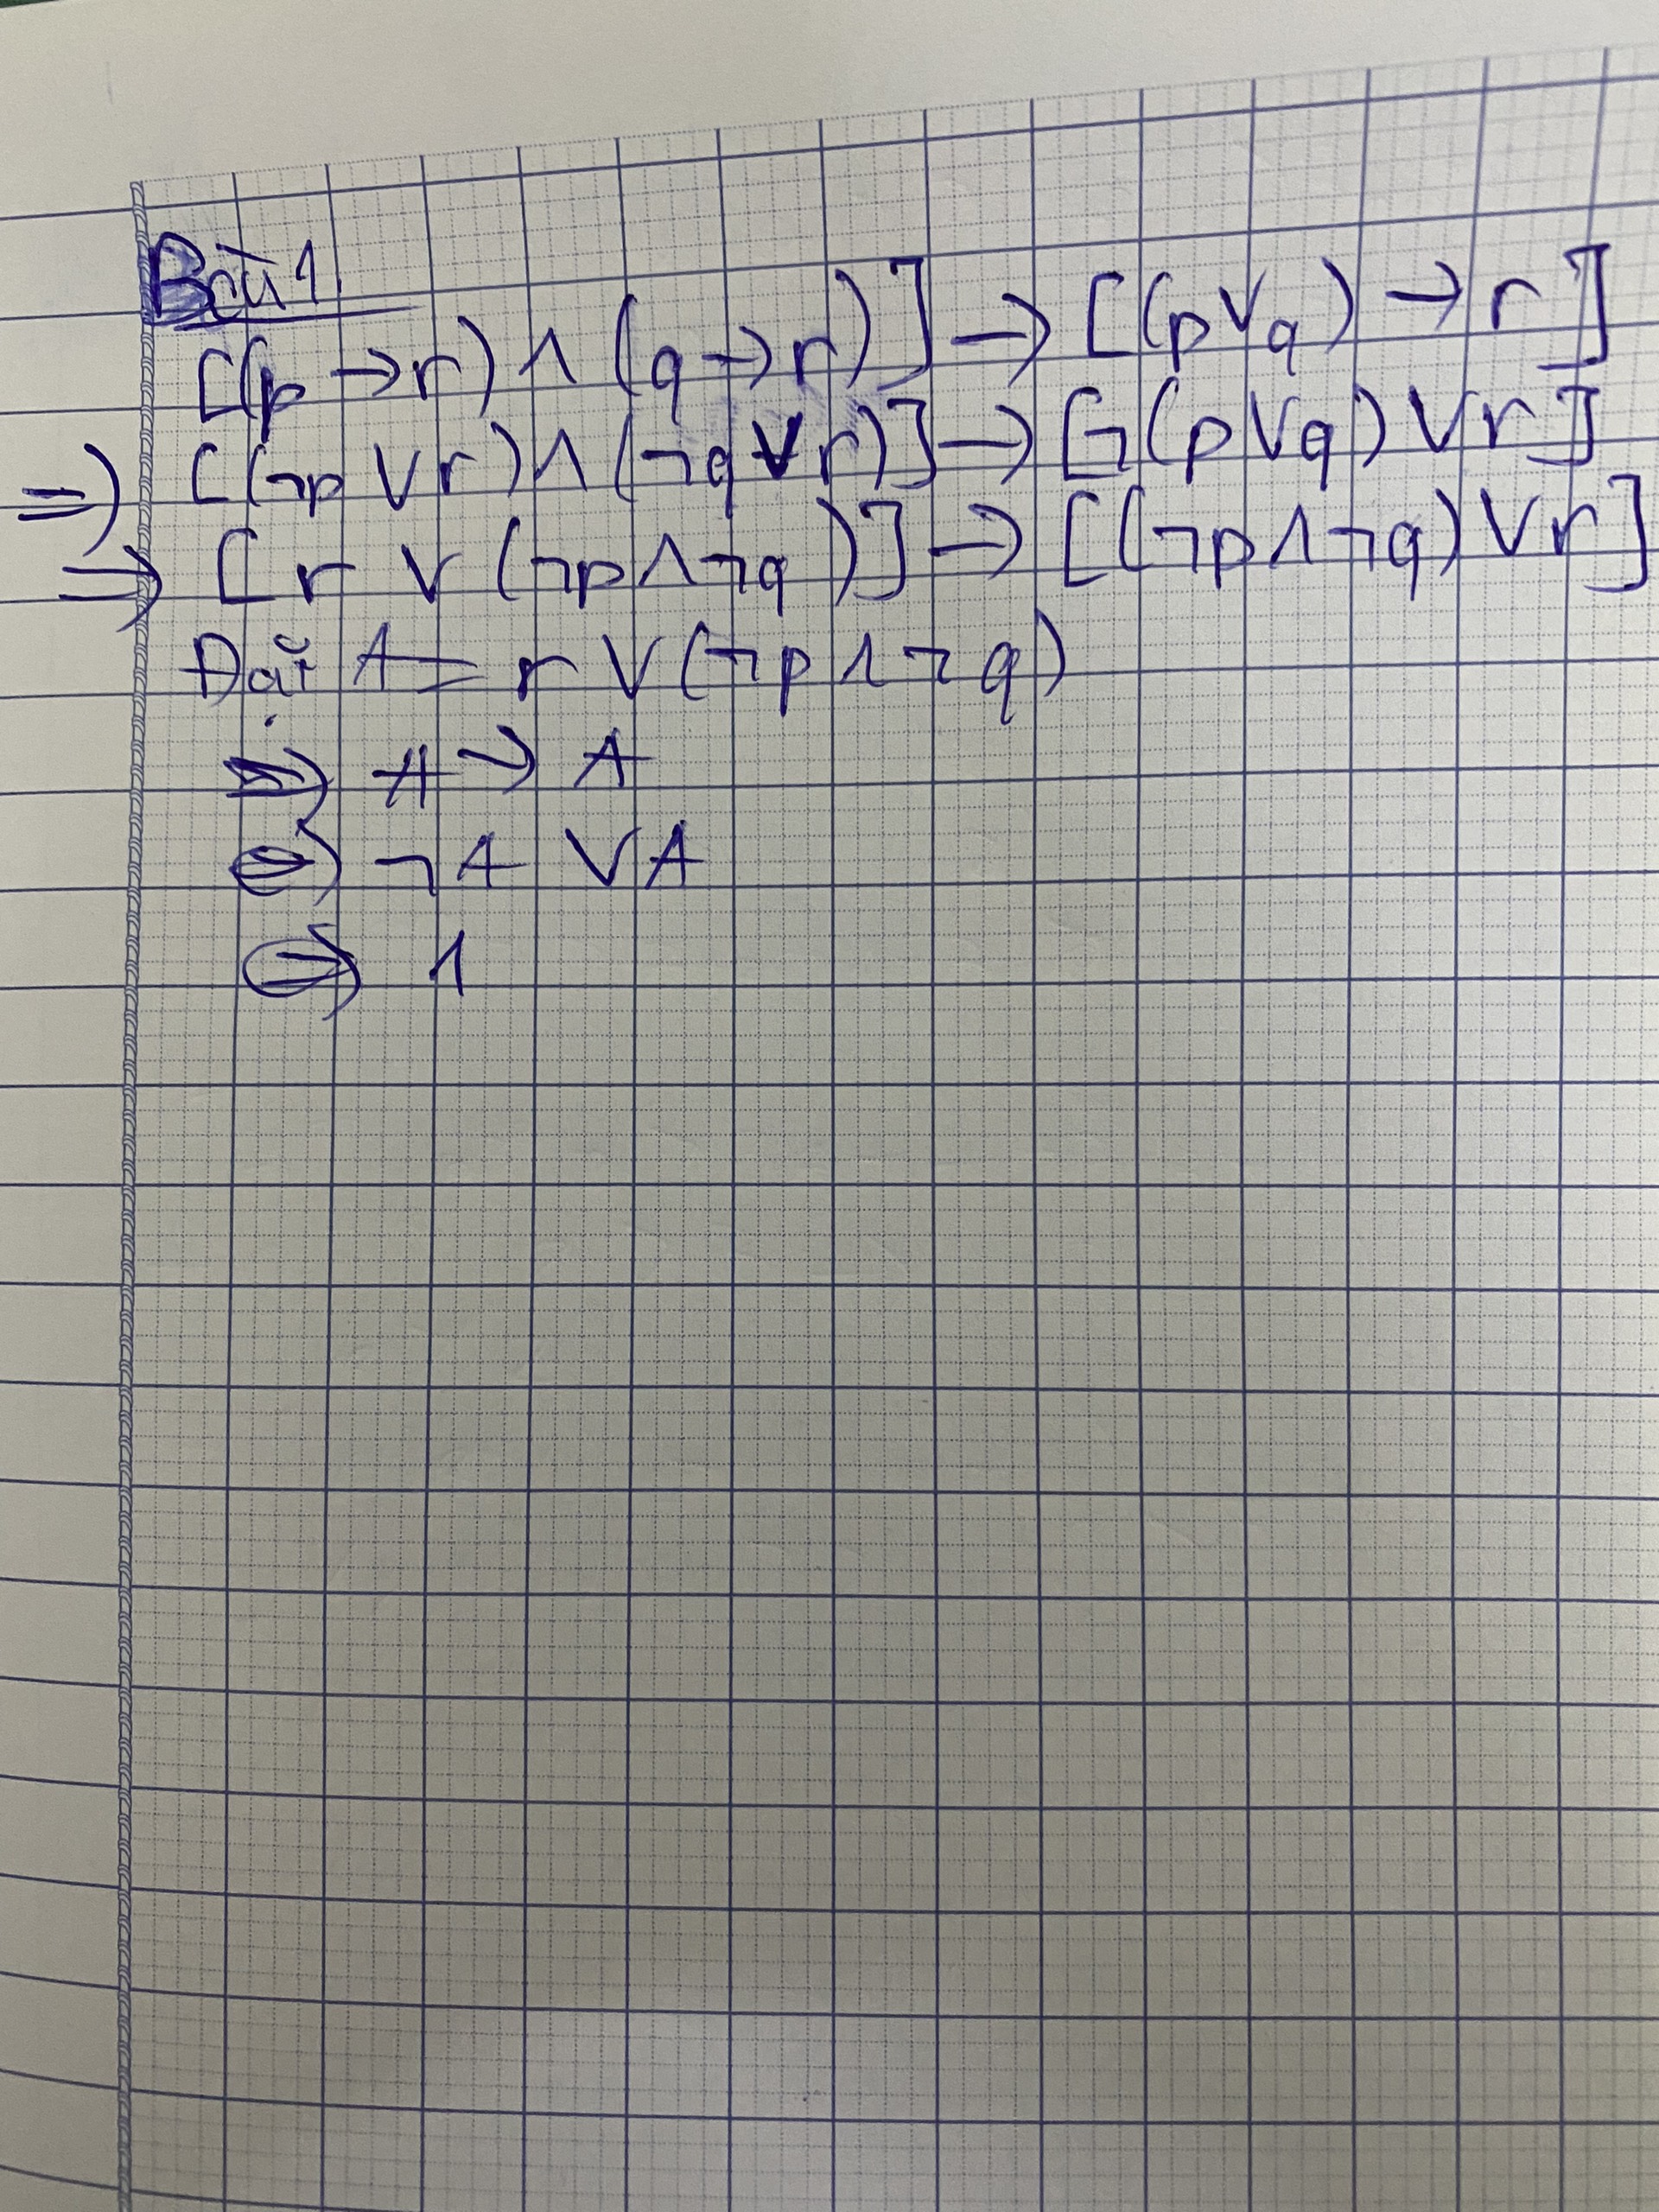 Bài 1
[(p → r) ∧ (q → r)] → [(p ∨ q) → r]
⇒ [(¬p ∨ r) ∧ (¬q ∨ r)] → [¬(p ∨ q) ∨ r]
⇒ [r ∨ (¬p ∧ ¬q)] → [(¬p ∧ ¬q) ∨ r]
Đặt A = r ∨ (¬p ∧ ¬q)
⇒ A → A
⇔ ¬A ∨ A
⇔ 1